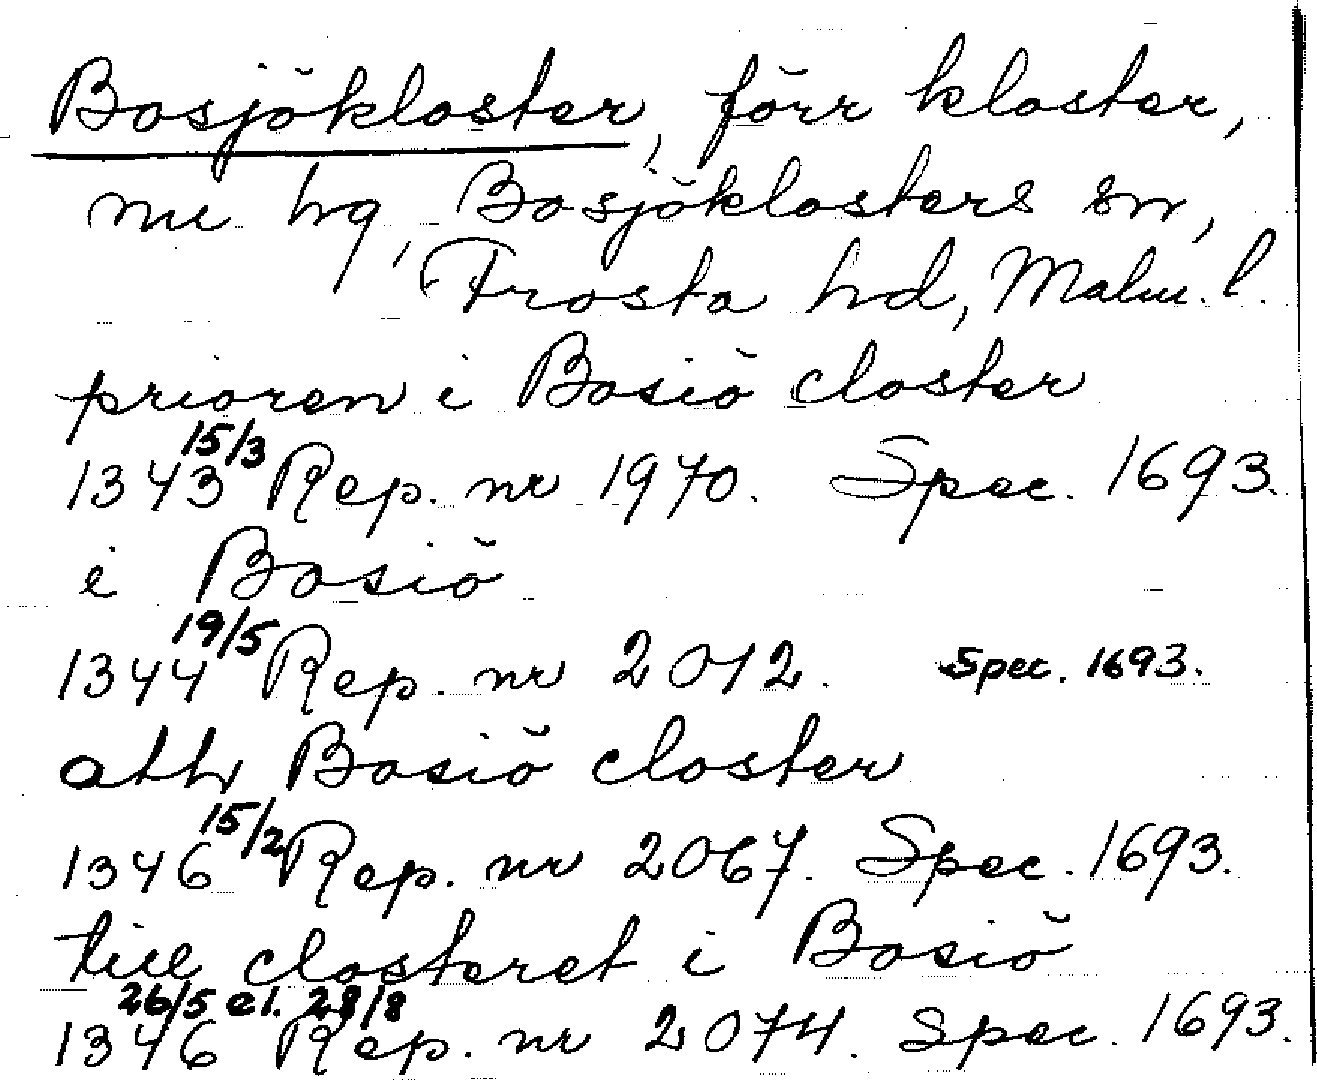 Bosjökloster, förr kloster,
nu hg, Bosjöklosters sn,
Frosta hd, Malm. l.
prioren i Bosiö closter
1343 15/3 Rep. nr 1970. Spec. 1693.
i Bosiö
1344 19/5 Rep. nr 2012. Spec. 1693.
ath Bosiö closter
1346 15/2 Rep. nr 2067. Spec. 1693.
till closteret i Bosiö
26/5 el. 28/8
1346 Rep. nr 2074. Spec. 1693.